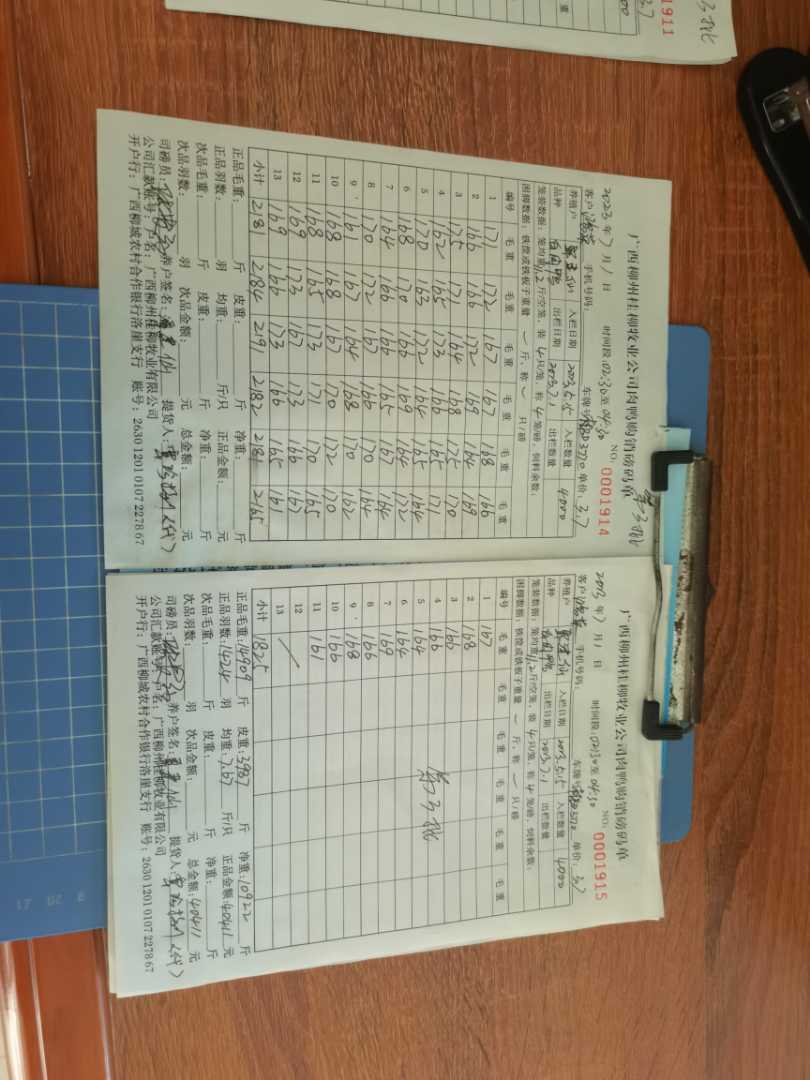 广西柳州桂柳牧业公司肉鸭购销磅码单 第3批
2023年7月1日 时间段:02:30至04:30 NO: 0001914
客户: 手机号码: 车牌号 单价:3.7
养殖户 入栏日期 2023.5.15 入栏数量 4000
品种 出栏日期 2023.7.1 出栏数量
笼装数据:笼均重11.2斤/空笼,装4只/笼,称4笼/磅,饲料余数:
围脚数据:铁筐或铁板子重量 一 斤,称 一 只/磅
编号 毛重 毛重 毛重 毛重 毛重 毛重
1 171 172 167 167 168 166
2 166 166 172 169 164 169
3 175 171 164 168 175 170
4 162 165 173 166 165 171
5 170 163 172 164 165 164
6 168 170 166 169 164 172
7 164 166 166 165 167 164
8 170 172 167 166 170 164
9 161 167 164 168 170 162
10 168 168 167 170 172 170
11 168 165 173 171 170 165
12 169 173 167 173 166 167
13 169 166 173 166 165 161
小计 2181 2184 2191 2182 2181 2165
正品毛重: 斤 皮重: 斤 净重: 斤
正品羽数: 羽 均重: 斤/只 正品金额: 元
次品毛重: 斤 皮重: 斤 净重: 斤
次品羽数: 羽 次品金额: 元 总金额: 元
司磅员: 养户签名: 提货人: (代)
公司汇款账号:户名:广西柳州桂柳牧业有限公司
开户行:广西柳城农村合作银行洛崖支行 账号:2630 1201 0107 2278 67
广西柳州桂柳牧业公司肉鸭购销磅码单
2023年7月1日 时间段:02:30至04:30 NO: 0001915
客户: 手机号码: 车牌号 单价:3.7
养殖户 入栏日期 2023.5.15 入栏数量 4000
品种 出栏日期 2023.7.1 出栏数量
笼装数据:笼均重11.2斤/空笼,装4只/笼,称4笼/磅,饲料余数:
围脚数据:铁筐或铁板子重量 一 斤,称 一 只/磅
编号 毛重 毛重 毛重 毛重 毛重 毛重
1 167
2 168
3 166
4 166 第3批
5 164
6 164
7 169
8 166
9 168
10 166
11 161
12
13
小计 1825
正品毛重:14909 斤 皮重:3987 斤 净重:10922 斤
正品羽数:1424 羽 均重:7.67 斤/只 正品金额:40411 元
次品毛重: 斤 皮重: 斤 净重: 斤
次品羽数: 羽 次品金额: 元 总金额:40411 元
司磅员: 养户签名: 提货人: (代)
公司汇款账号:户名:广西柳州桂柳牧业有限公司
开户行:广西柳城农村合作银行洛崖支行 账号:2630 1201 0107 2278 67